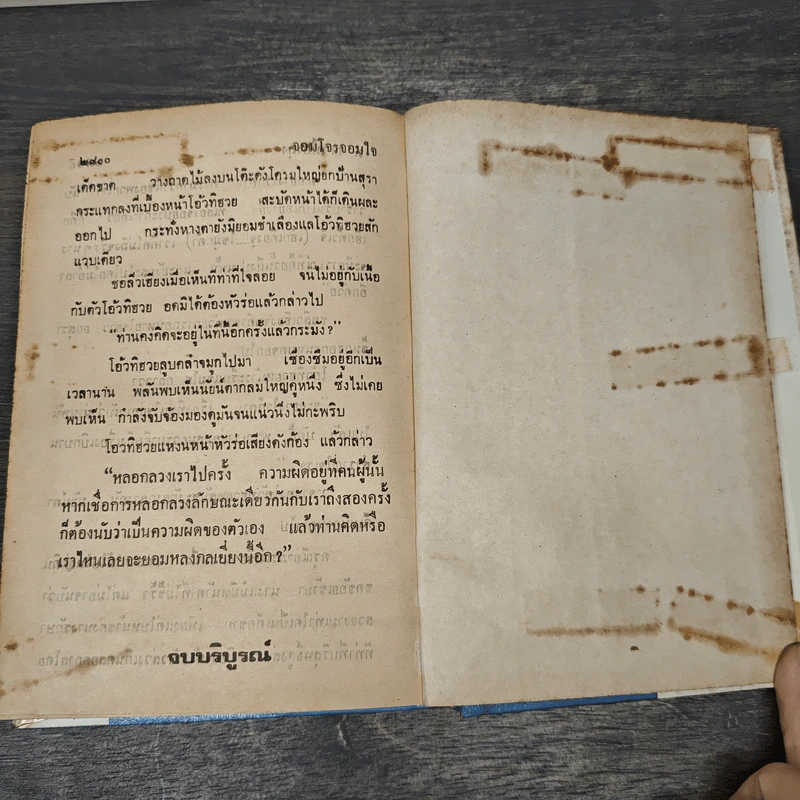 ๒๘๑๐ จอมโจรจอมใจ
เด็ดขาด วางถาดไม้ลงบนโต๊ะดังโครมใหญ่ยกป้านสุรา
กระแทกลงที่เบื้องหน้าโอ้วทิฮวย สะบัดหน้าได้ก็เดินผละ
ออกไป กระทั่งหางตายังมิยอมชำเลืองแลโอ้วทิฮวยสัก
แวบเดียว
ซอลิ้วเฮียงเมื่อเห็นทีท่าที่ใจลอย จนไม่อยู่กับเนื้อ
กับตัวโอ้วทิฮวย อดมิได้ต้องหัวร่อแล้วกล่าวไป
“ท่านคงคิดจะอยู่ในที่นี้อีกครั้งแล้วกระมัง?”
โอ้วทิฮวยลูบคลำจมูกไปมา เซื่องซึมอยู่อีกเป็น
เวลานาน พลันพบเห็นนัยน์ตากลมใหญ่คู่หนึ่ง ซึ่งไม่เคย
พบเห็น กำลังจับจ้องมองดูมันจนแน่วนิ่งไม่กะพริบ
โอวทิฮวยแหงนหน้าหัวร่อเสียงดังก้อง แล้วกล่าว
“หลอกลวงเราไปครั้ง ความผิดอยู่ที่คนผู้นั้น
หากเชื่อการหลอกลวงลักษณะเดียวกันกับเราถึงสองครั้ง
ก็ต้องนับว่าเป็นความผิดของตัวเอง แล้วท่านคิดหรือ
เราไหนเลยจะยอมหลงกลเยี่ยงนี้อีก?”
จบบริบูรณ์